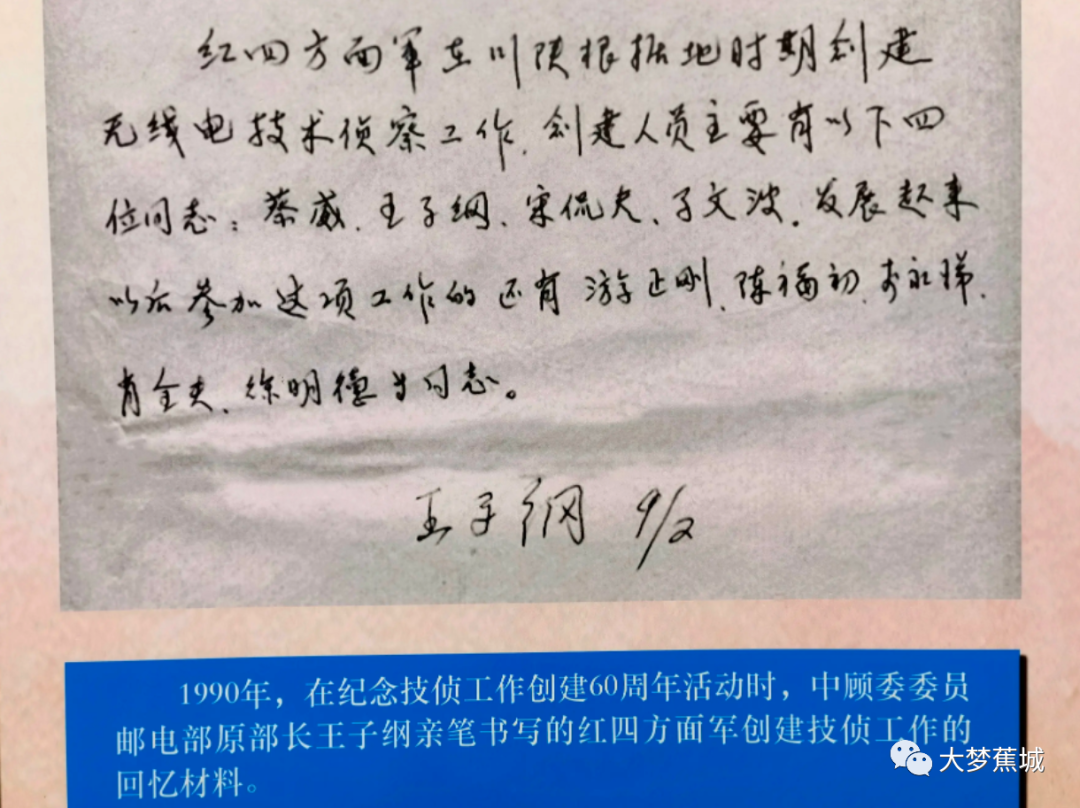 红四方面军在川陕根据地时期创建
无线电技术侦察工作，创建人员主要有以下四
位同志：蔡威、王子纲、宋侃夫、子文波。发展起来
以后参加这项工作的还有游正刚、陈福初、李永悌、
肖全夫、徐明德等同志。
王子纲 9/2
1990年，在纪念技侦工作创建60周年活动时，中顾委委员
邮电部原部长王子纲亲笔书写的红四方面军创建技侦工作的
回忆材料。
大梦蕉城